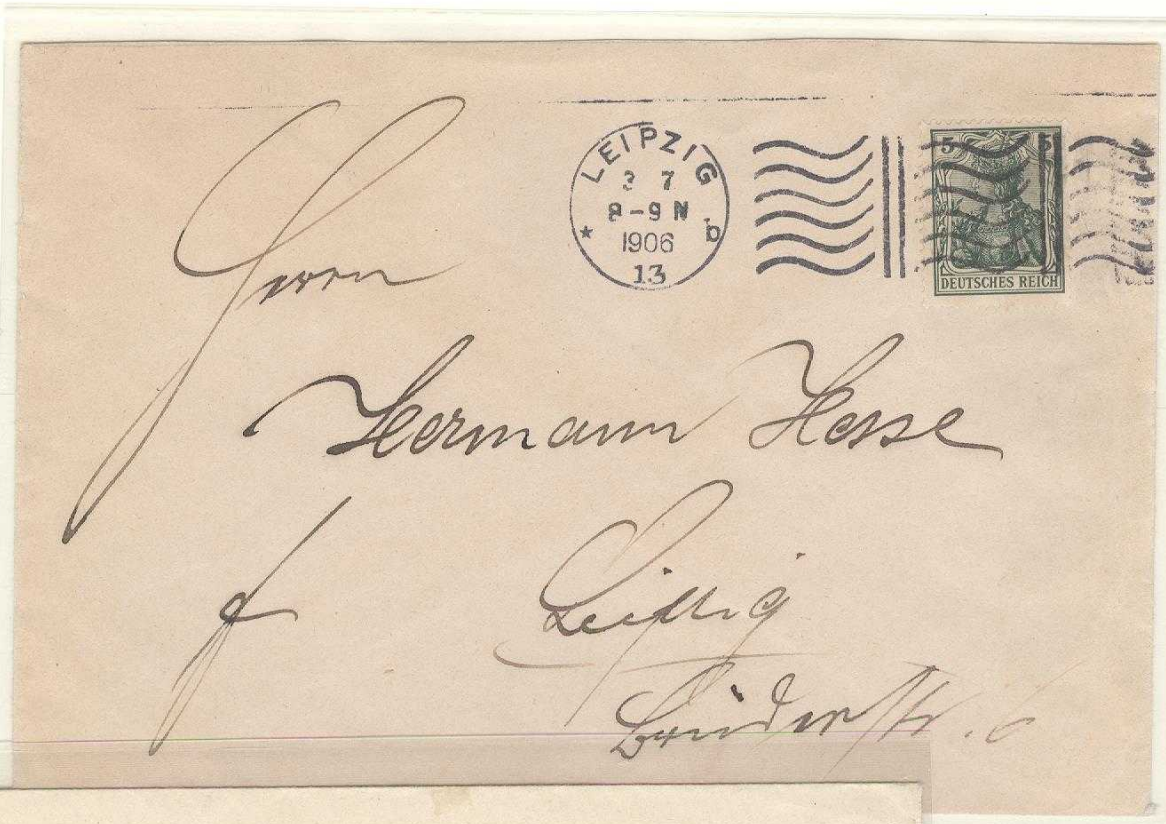 LEIPZIG
3 7
8-9 N
* b
1906
13
5 5
DEUTSCHES REICH
Herrn
Hermann Hesse
Leipzig
Brüderstr. 6